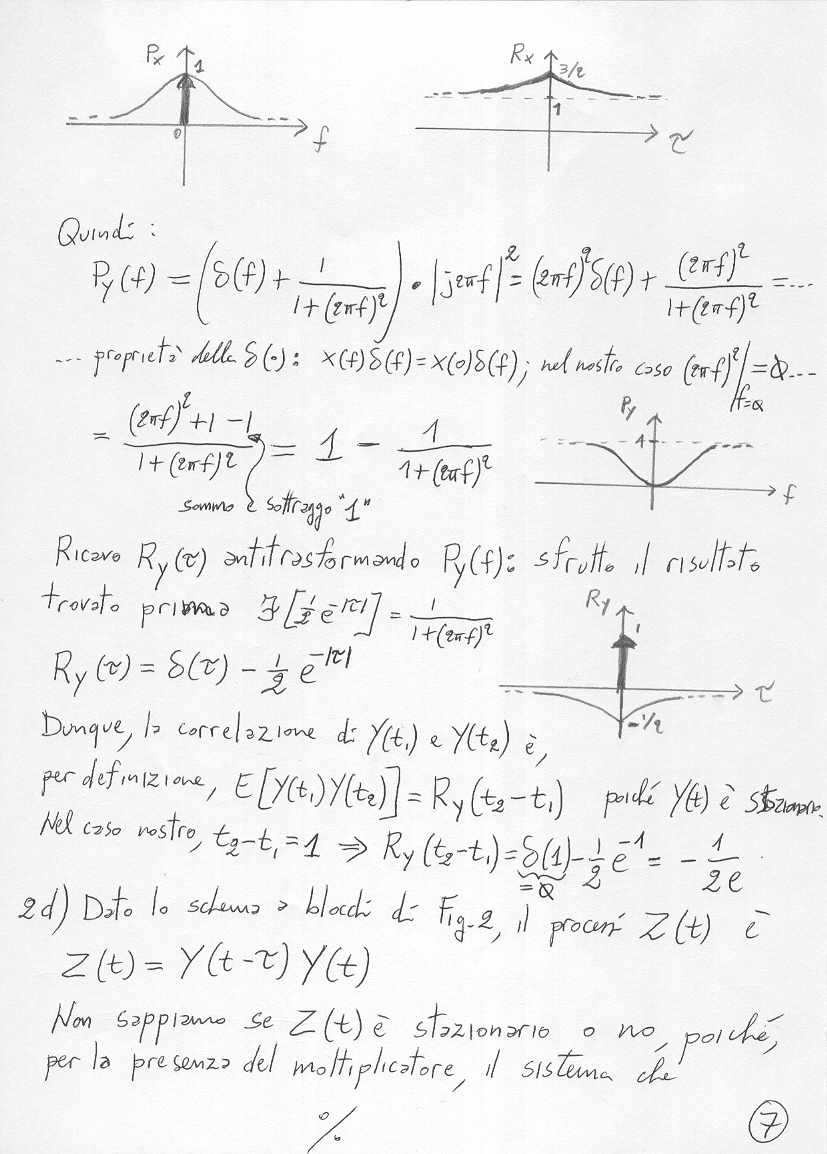 Px 1 0 f
Rx 3/2 1 τ
Quindi:
Py(f) = (δ(f) + 1/(1+(2πf)²)) · |j2πf|² = (2πf)²δ(f) + (2πf)²/(1+(2πf)²) = ...
... proprietà della δ(·): x(f)δ(f)=x(0)δ(f); nel nostro caso (2πf)²|f=0 = 0...
= ((2πf)²+1-1)/(1+(2πf)²) = 1 - 1/(1+(2πf)²)
Py 1 f
sommo e sottraggo "1"
Ricavo Ry(τ) antitrasformando Py(f): sfrutto il risultato
trovato prima ℱ[½ e^-|τ|] = 1/(1+(2πf)²)
Ry 1 -1/2 τ
Ry(τ) = δ(τ) - ½ e^-|τ|
Dunque, la correlazione di Y(t₁) e Y(t₂) è,
per definizione, E[Y(t₁)Y(t₂)] = Ry(t₂-t₁) poiché Y(t) è stazionario.
Nel caso nostro, t₂-t₁=1 ⇒ Ry(t₂-t₁) = δ(1) - ½ e^-1 = - 1/(2e)
=0
2d) Dato lo schema a blocchi di Fig.2, il processi Z(t) è
Z(t) = Y(t-τ) Y(t)
Non sappiamo se Z(t) è stazionario o no, poiché,
per la presenza del moltiplicatore, il sistema che
%
7